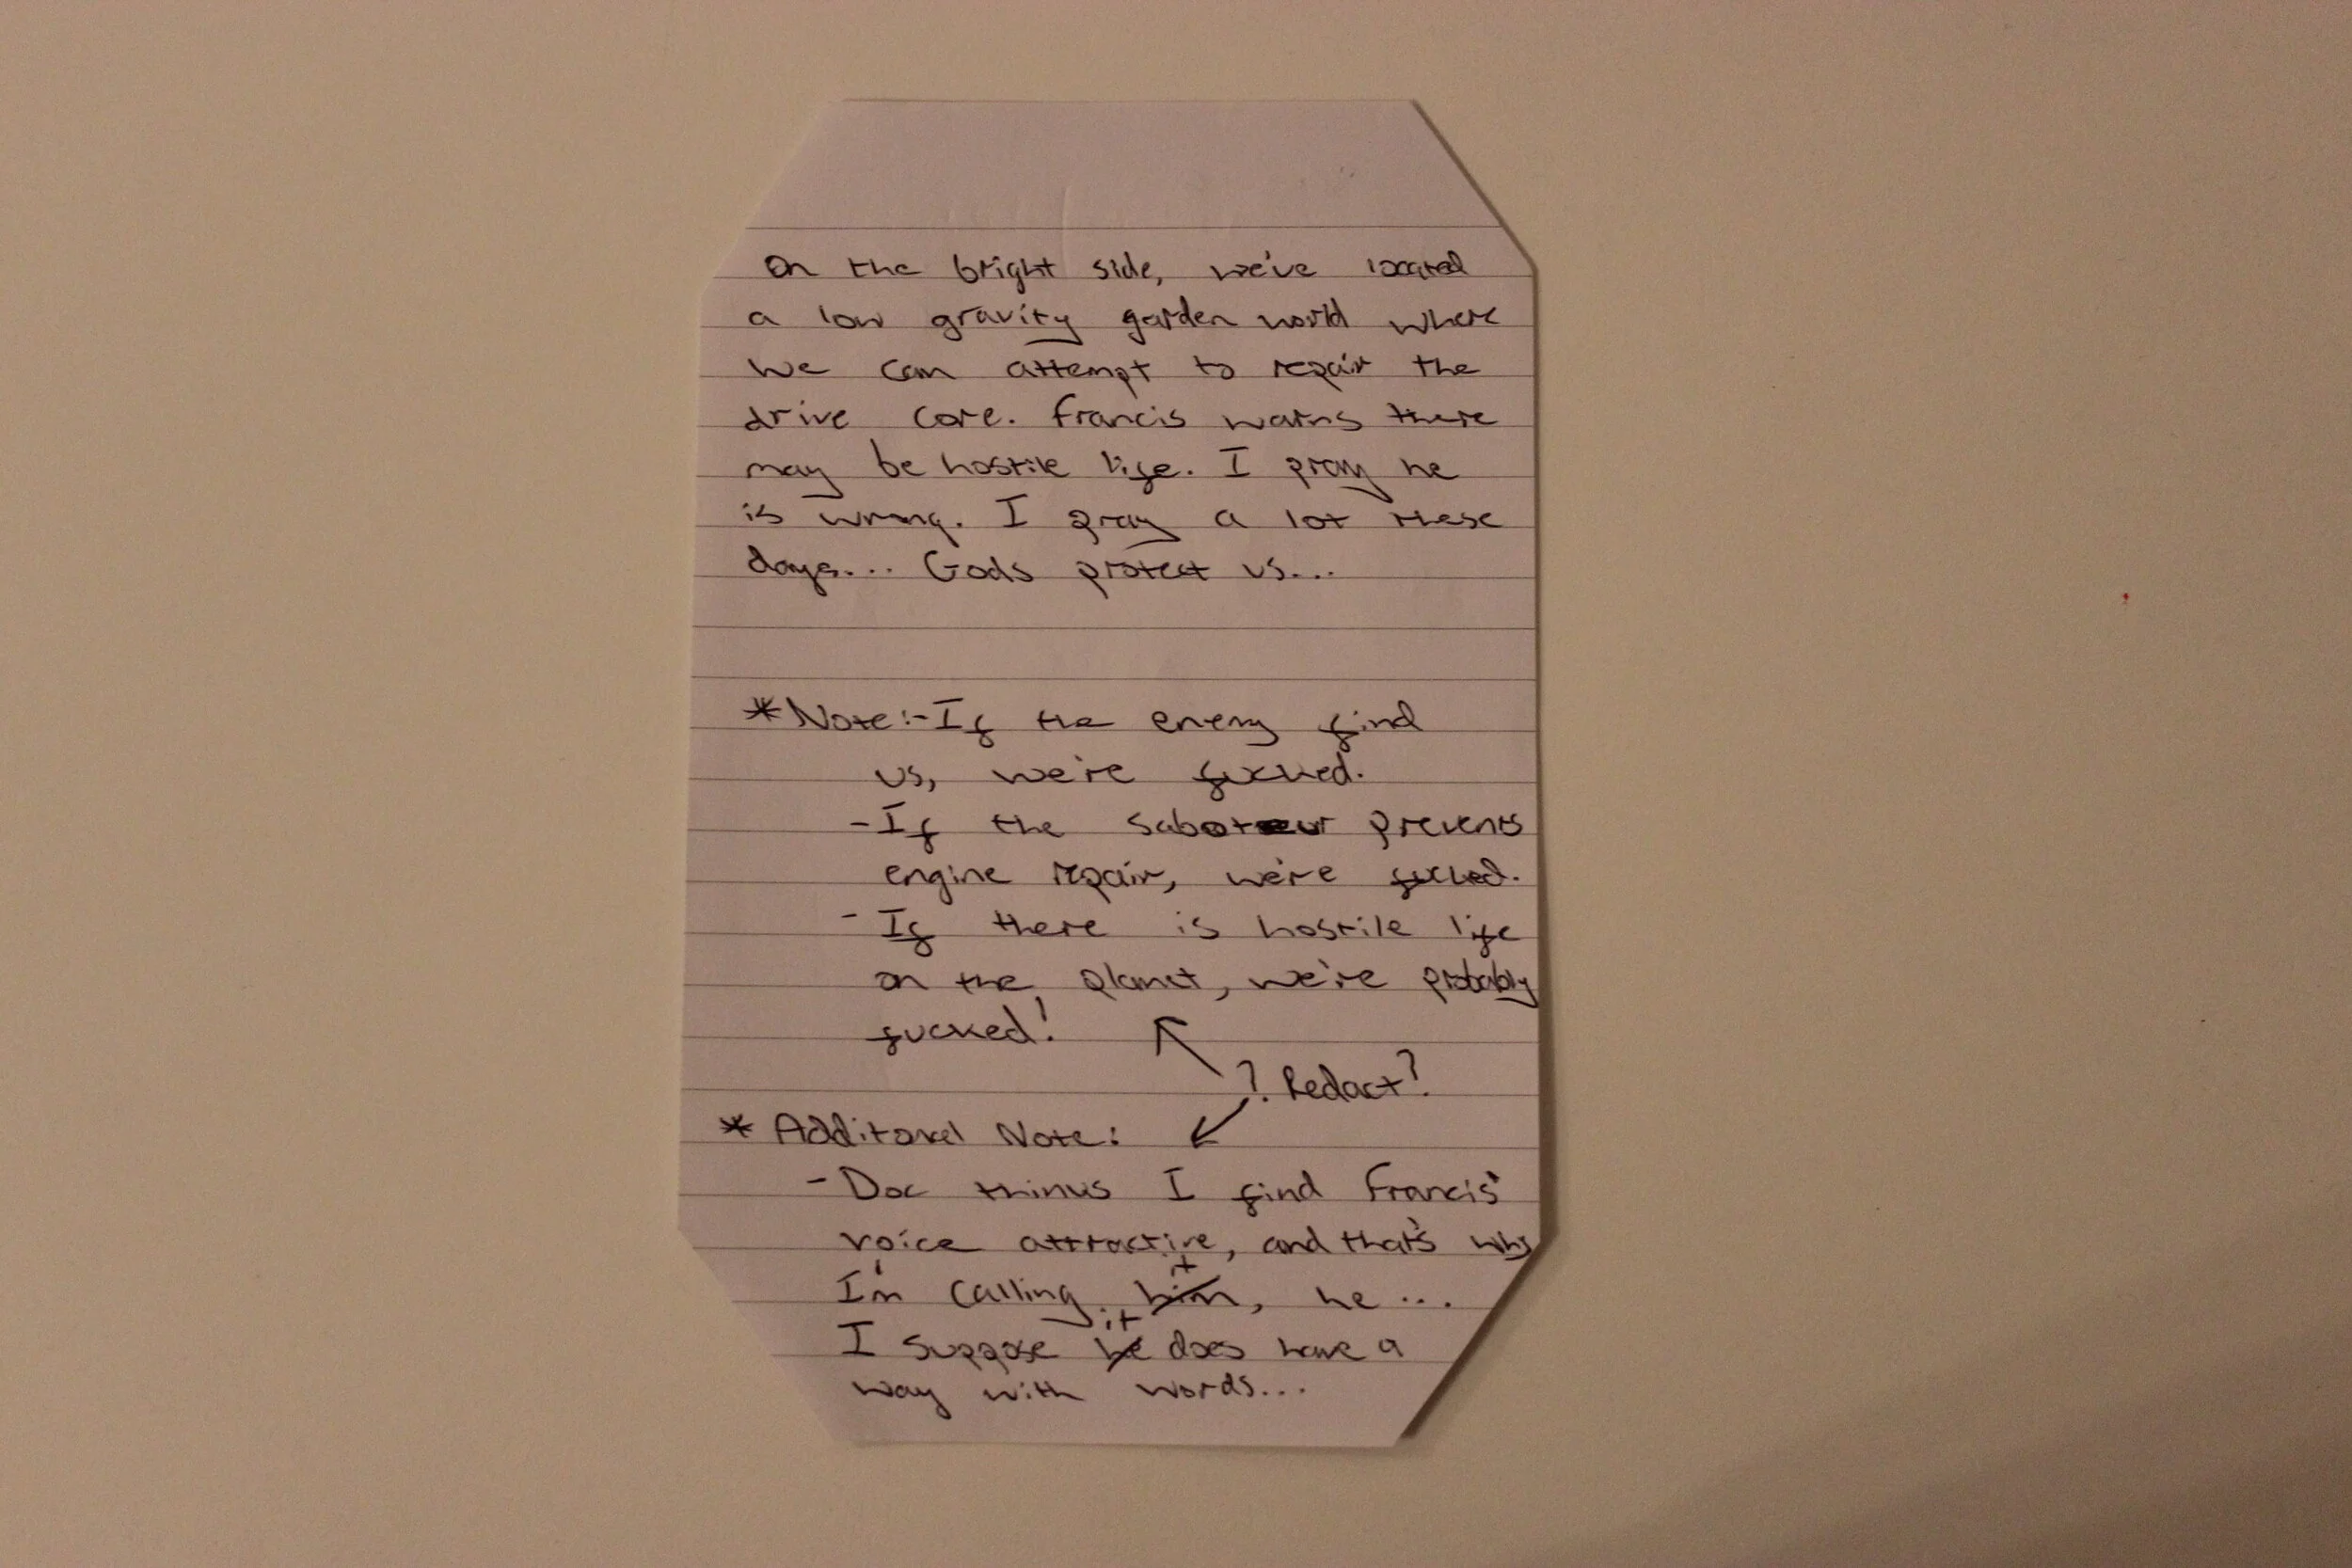 On the bright side, we've located
a low gravity garden world where
we can attempt to repair the
drive core. Francis warns there
may be hostile life. I pray he
is wrong. I pray a lot these
days... Gods protect us...
*Note:-If the enemy find
us, we're fucked.
-If the saboteur prevents
engine repair, we're fucked.
- If there is hostile life
on the planet, we're probably
fucked!
?. Redact?
* Additonal Note:
-Doc thinks I find Francis'
voice attractive, and that's why
it
I'm calling him, he...
it
I suppose he does have a
way with words...